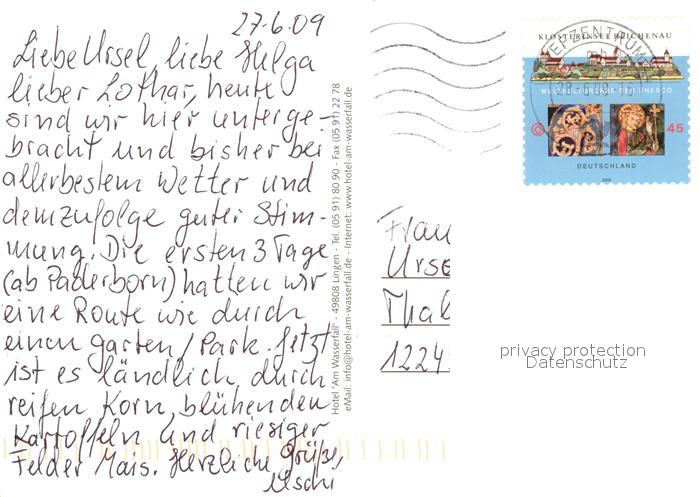 27.6.09
Liebe Ursel, liebe Helga
lieber Lothar, heute
sind wir hier unterge-
bracht und bisher bei
allerbestem Wetter und
demzufolge guter Stim-
mung. Die ersten 3 Tage
(ab Paderborn) hatten wir
eine Route wie durch
einen garten / Park. Jetzt
ist es ländlich, durch
reifen Korn, blühenden
Kartoffeln und riesiger
Felder Mais. Herzliche Grüße,
Uschi
Hotel "Am Wasserfall" · 49808 Lingen · Tel. (05 91) 80 90 · Fax (05 91) 22 78
eMail: info@hotel-am-wasserfall.de · Internet: www.hotel-am-wasserfall.de
KLOSTERINSEL REICHENAU
WELTKULTURERBE DER UNESCO
45
DEUTSCHLAND
2008
Frau
Urse
Thal
1224
privacy protection
Datenschutz